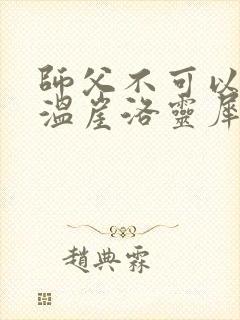 師父不可以
溫崖洛靈犀
趙典霖